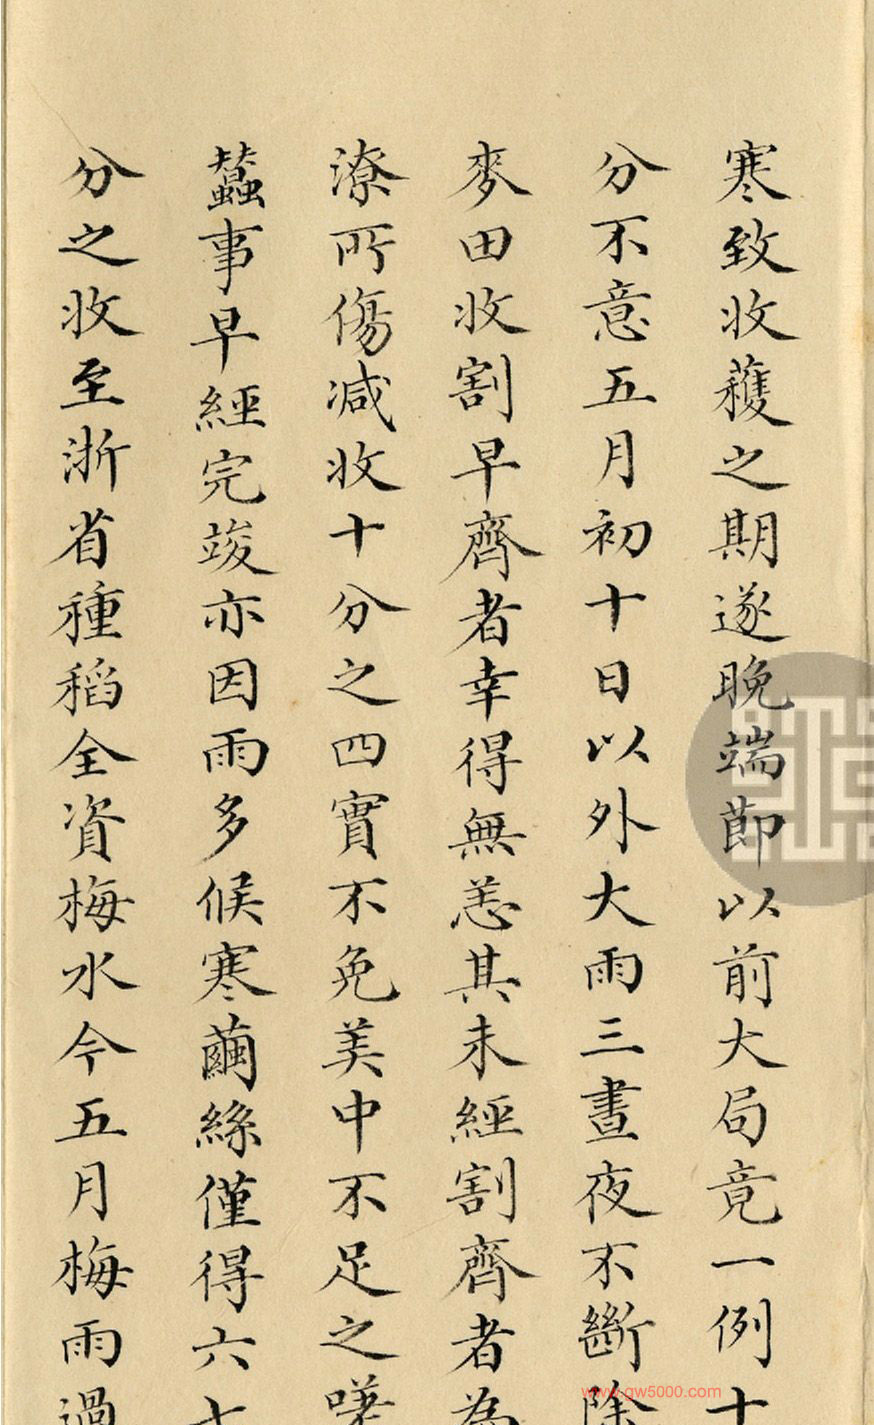 寒致收蘾之期遂晚端節以前大局竟一例十
分不意五月初十日以外大雨三晝夜不斷除
麥田收割早齊者幸得無恙其未經割齊者為
潦所傷減收十分之四實不免美中不足之嘆
蠶事早經完竣亦因雨多候寒繭絲僅得六七
分之收至浙省種稻全資梅水今五月梅雨過
www.gw5000.com